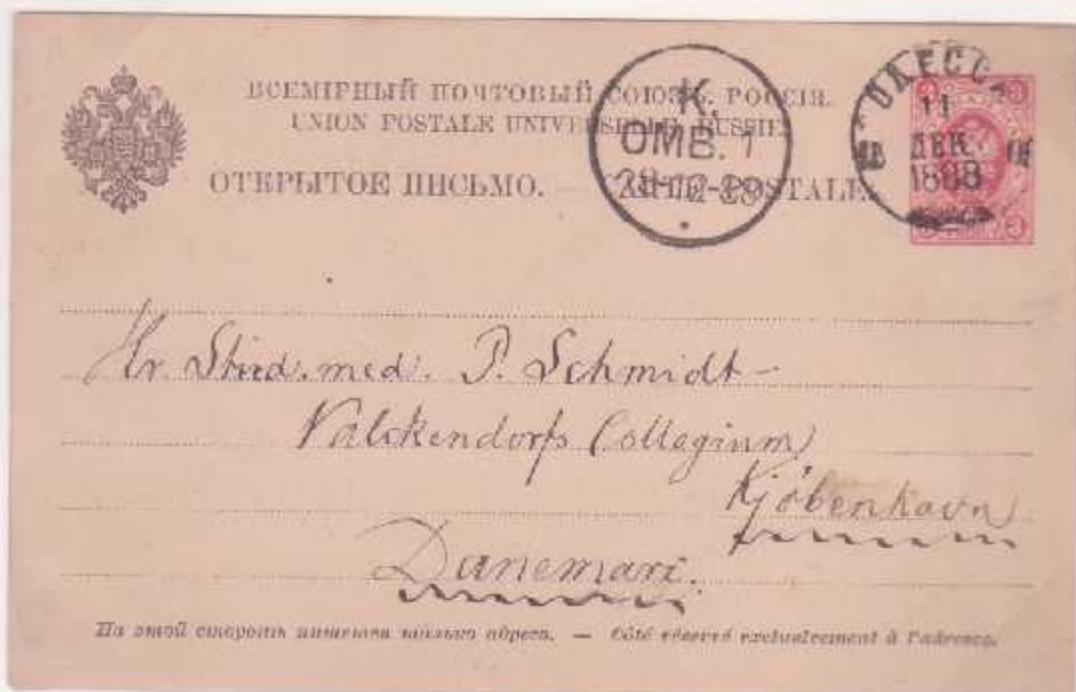 ВСЕМІРНЫЙ ПОЧТОВЫЙ СОЮЗЪ. РОССІЯ.
UNION POSTALE UNIVERSELLE. RUSSIE
ОТКРЫТОЕ ПИСЬМО. — CARTE POSTALE.
К.
OMB. 1
ОДЕССА
11
ДЕК.
1888
3
3
3
3
Hr Stud. med. P. Schmidt
Valckendorfs Collegium
Kjöbenhavn
Danemark.
На этой сторонѣ пишется только адресъ. — Côté réservé exclusivement à l'adresse.